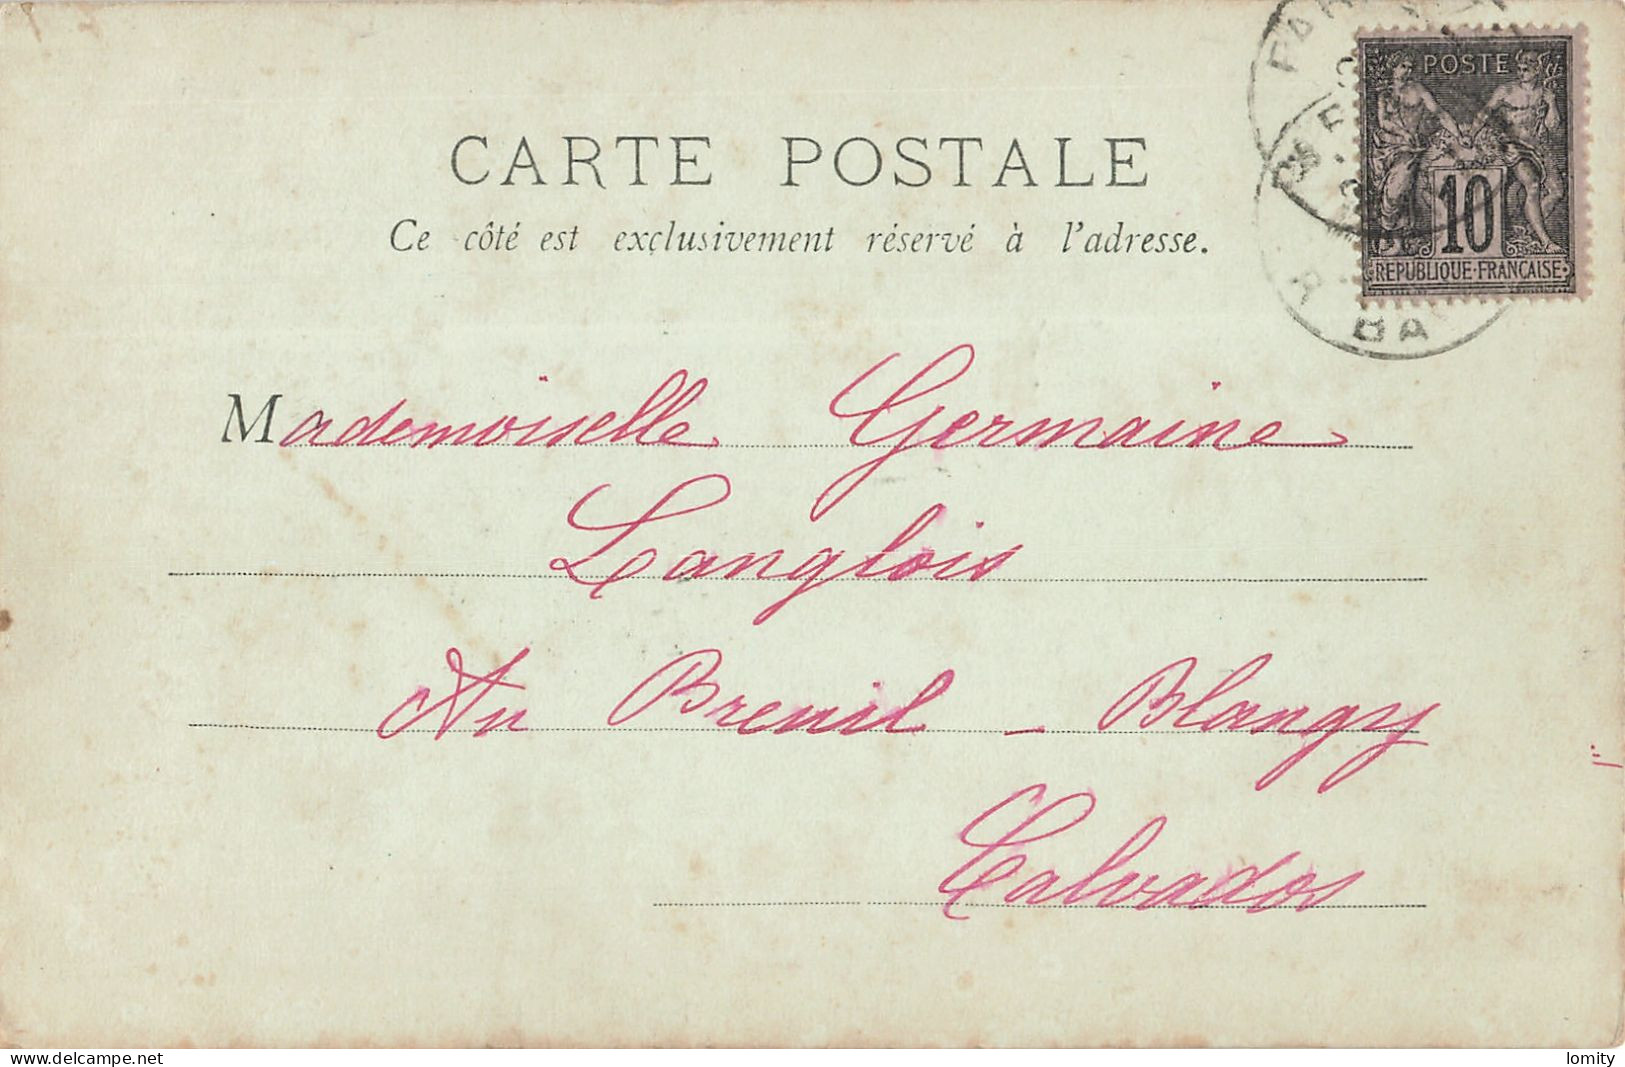 POSTE
10
REPUBLIQUE FRANÇAISE
CARTE POSTALE
Ce côté est exclusivement réservé à l'adresse.
Mademoiselle Germaine
Langlois
Au Breuil - Blangy
Calvados
www.delcampe.net
lomity